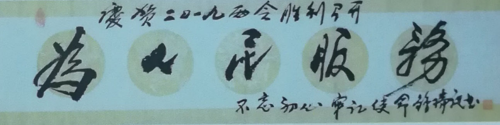 庆贺二〇一九两会胜利召开
为人民服務
不忘初心牢记使命